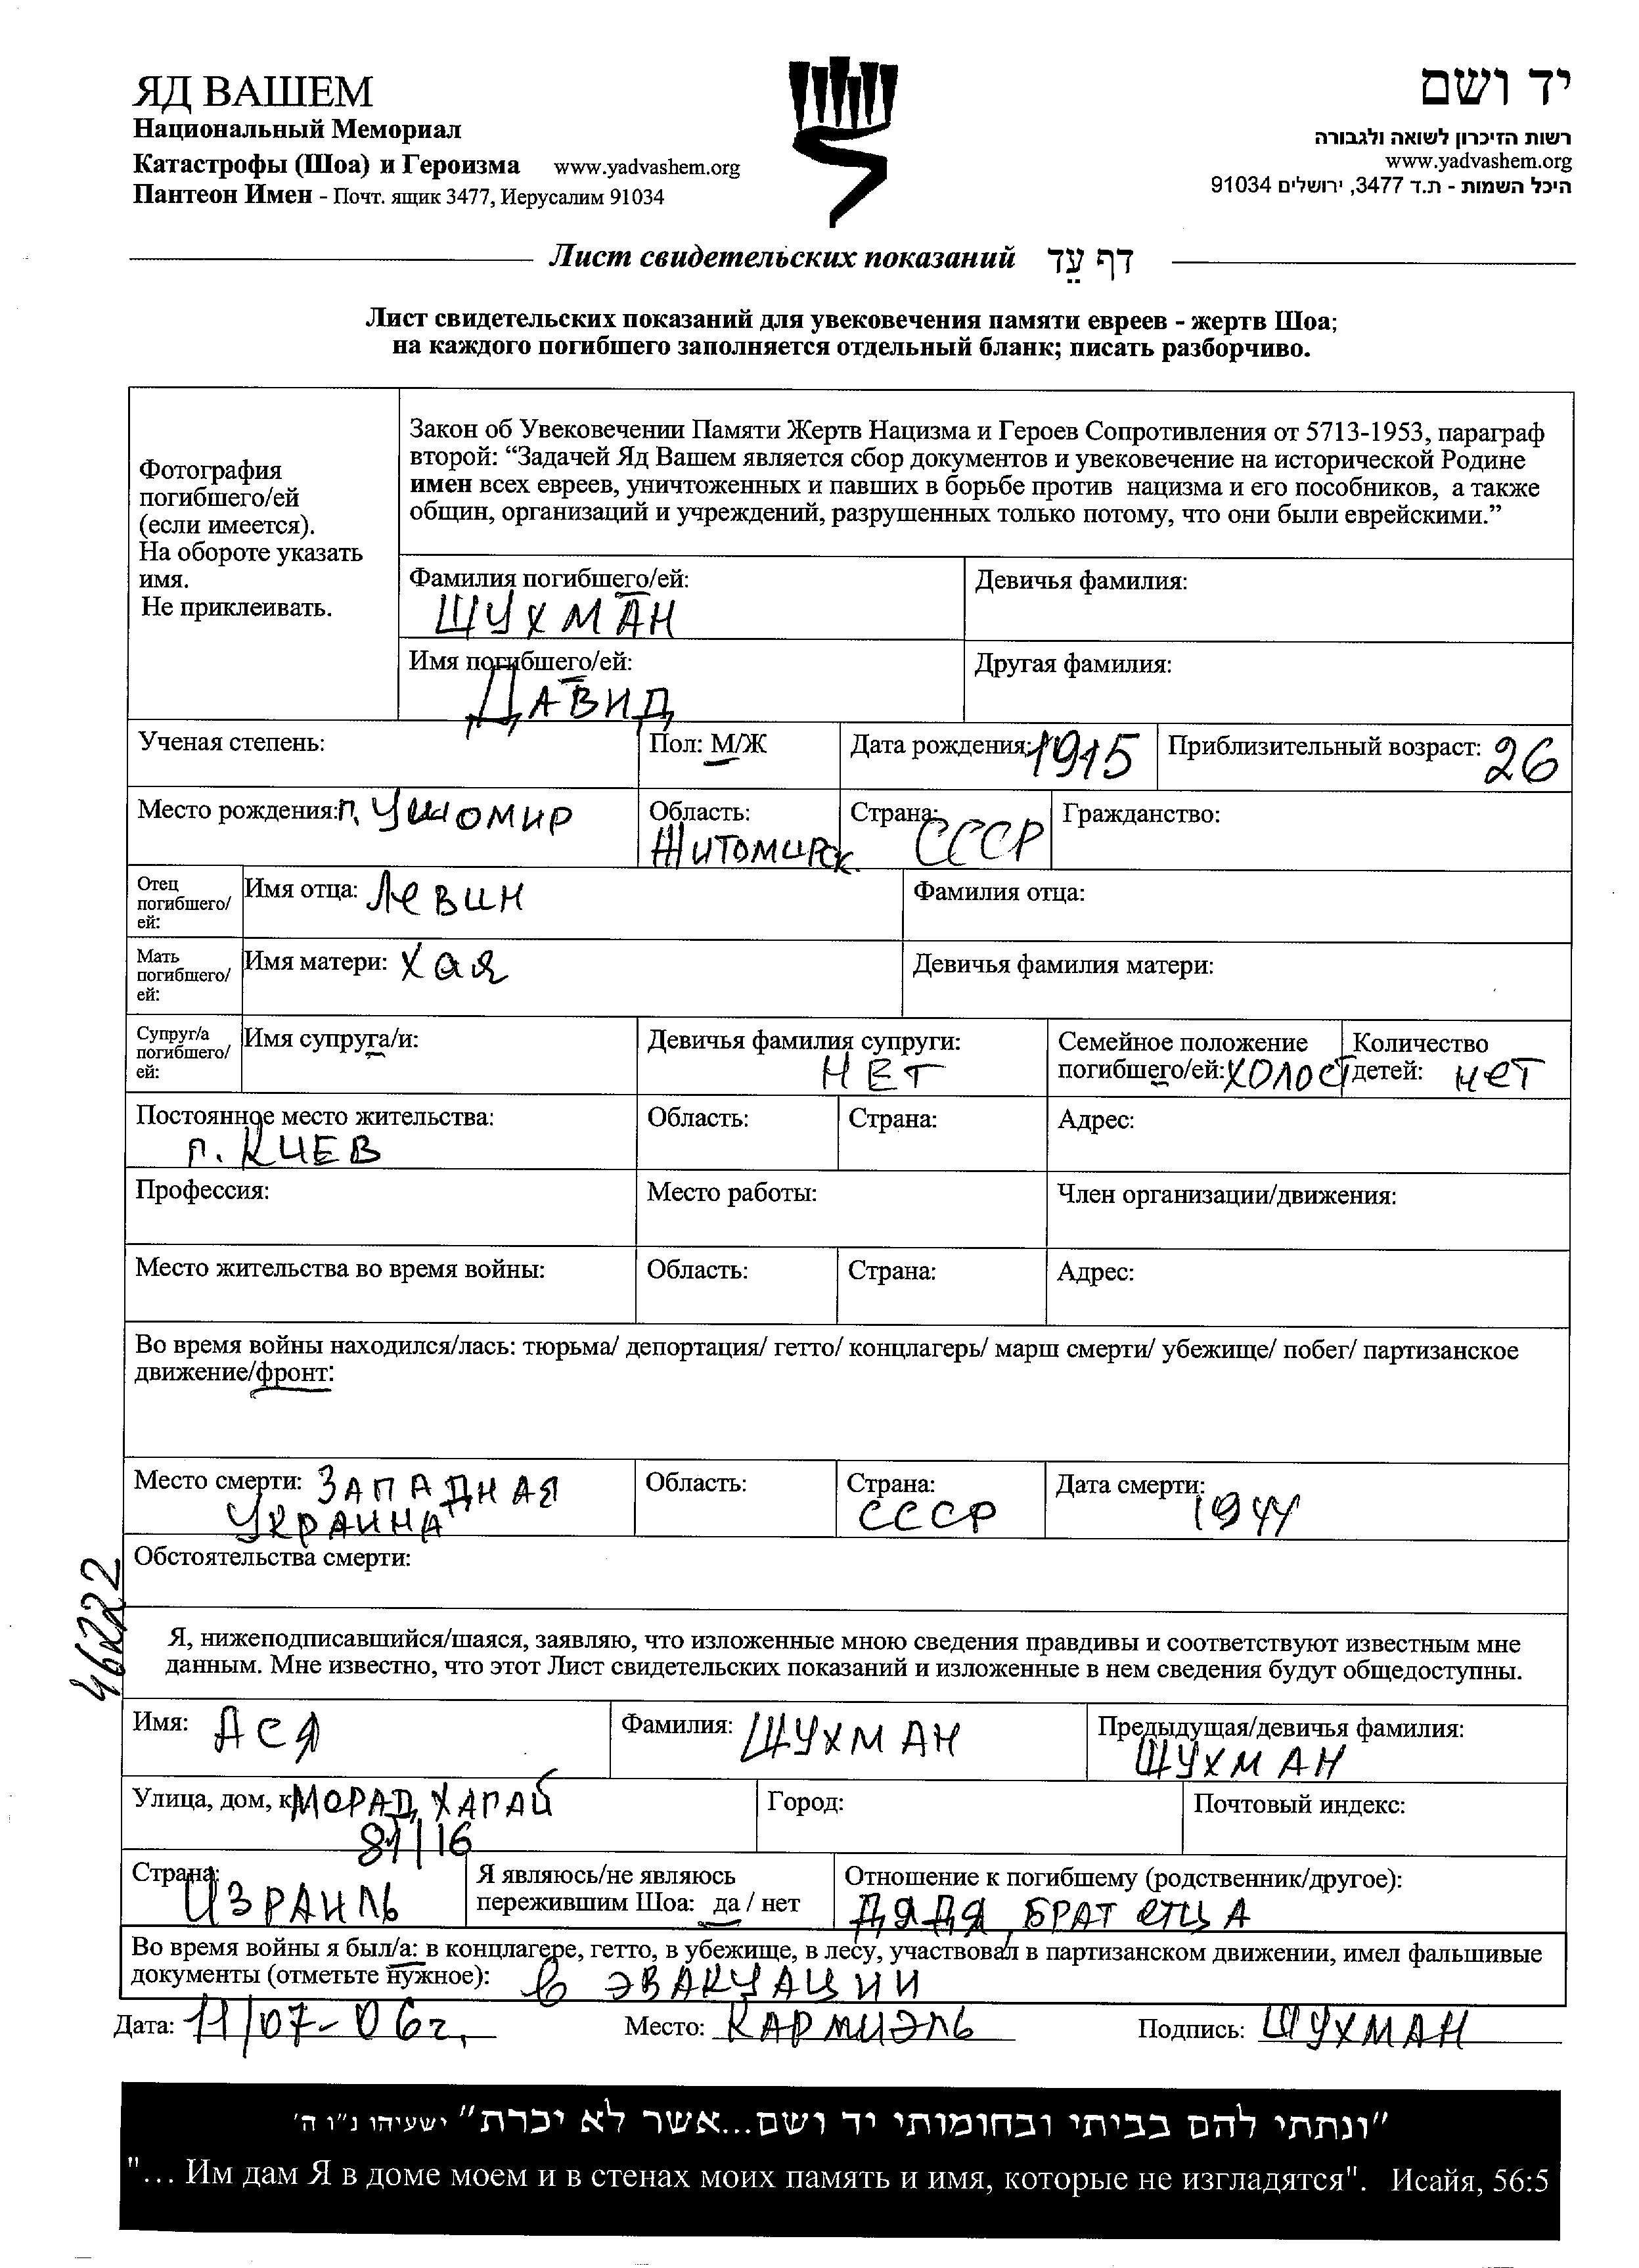 ЯД ВАШЕМ
Национальный Мемориал
Катастрофы (Шоа) и Героизма www.yadvashem.org
Пантеон Имен - Почт. ящик 3477, Иерусалим 91034
יד ושם
רשות הזיכרון לשואה ולגבורה
www.yadvashem.org
היכל השמות - ת.ד 3477, ירושלים 91034
Лист свидетельских показаний דף עֵד
Лист свидетельских показаний для увековечения памяти евреев - жертв Шоа;
на каждого погибшего заполняется отдельный бланк; писать разборчиво.
Фотография
погибшего/ей
(если имеется).
На обороте указать
имя.
Не приклеивать.
Закон об Увековечении Памяти Жертв Нацизма и Героев Сопротивления от 5713-1953, параграф
второй: “Задачей Яд Вашем является сбор документов и увековечение на исторической Родине
имен всех евреев, уничтоженных и павших в борьбе против нацизма и его пособников, а также
общин, организаций и учреждений, разрушенных только потому, что они были еврейскими.”
Фамилия погибшего/ей:
ШУХМАН
Девичья фамилия:
Имя погибшего/ей:
ДАВИД
Другая фамилия:
Ученая степень:
Пол: М/Ж
Дата рождения: 1915
Приблизительный возраст: 26
Место рождения: п. Ушомир
Область:
Житомирск.
Страна:
СССР
Гражданство:
Отец
погибшего/
ей:
Имя отца: Левин
Фамилия отца:
Мать
погибшего/
ей:
Имя матери: Хая
Девичья фамилия матери:
Супруг/а
погибшего/
ей:
Имя супруга/и:
Девичья фамилия супруги:
НЕТ
Семейное положение
погибшего/ей: ХОЛОСТ
Количество
детей: НЕТ
Постоянное место жительства:
г. КИЕВ
Область:
Страна:
Адрес:
Профессия:
Место работы:
Член организации/движения:
Место жительства во время войны:
Область:
Страна:
Адрес:
Во время войны находился/лась: тюрьма/ депортация/ гетто/ концлагерь/ марш смерти/ убежище/ побег/ партизанское
движение/фронт:
Место смерти: ЗАПАДНАЯ
УКРАИНА
Область:
Страна:
СССР
Дата смерти:
1944
Обстоятельства смерти:
46222
Я, нижеподписавшийся/шаяся, заявляю, что изложенные мною сведения правдивы и соответствуют известным мне
данным. Мне известно, что этот Лист свидетельских показаний и изложенные в нем сведения будут общедоступны.
Имя: АСЯ
Фамилия: ШУХМАН
Предыдущая/девичья фамилия:
ШУХМАН
Улица, дом, к МОРАД ХАГАЙ
81/16
Город:
Почтовый индекс:
Страна:
ИЗРАИЛЬ
Я являюсь/не являюсь
пережившим Шоа: да / нет
Отношение к погибшему (родственник/другое):
ДЯДЯ, БРАТ ОТЦА
Во время войны я был/а: в концлагере, гетто, в убежище, в лесу, участвовал в партизанском движении, имел фальшивые
документы (отметьте нужное): В ЭВАКУАЦИИ
Дата: 11/07-06г. Место: КАРМИЭЛЬ Подпись: ШУХМАН
"ונתתי להם בביתי ובחומותי יד ושם...אשר לא יכרת" ישעיהו נ"ו ה'
"... Им дам Я в доме моем и в стенах моих память и имя, которые не изгладятся". Исайя, 56:5